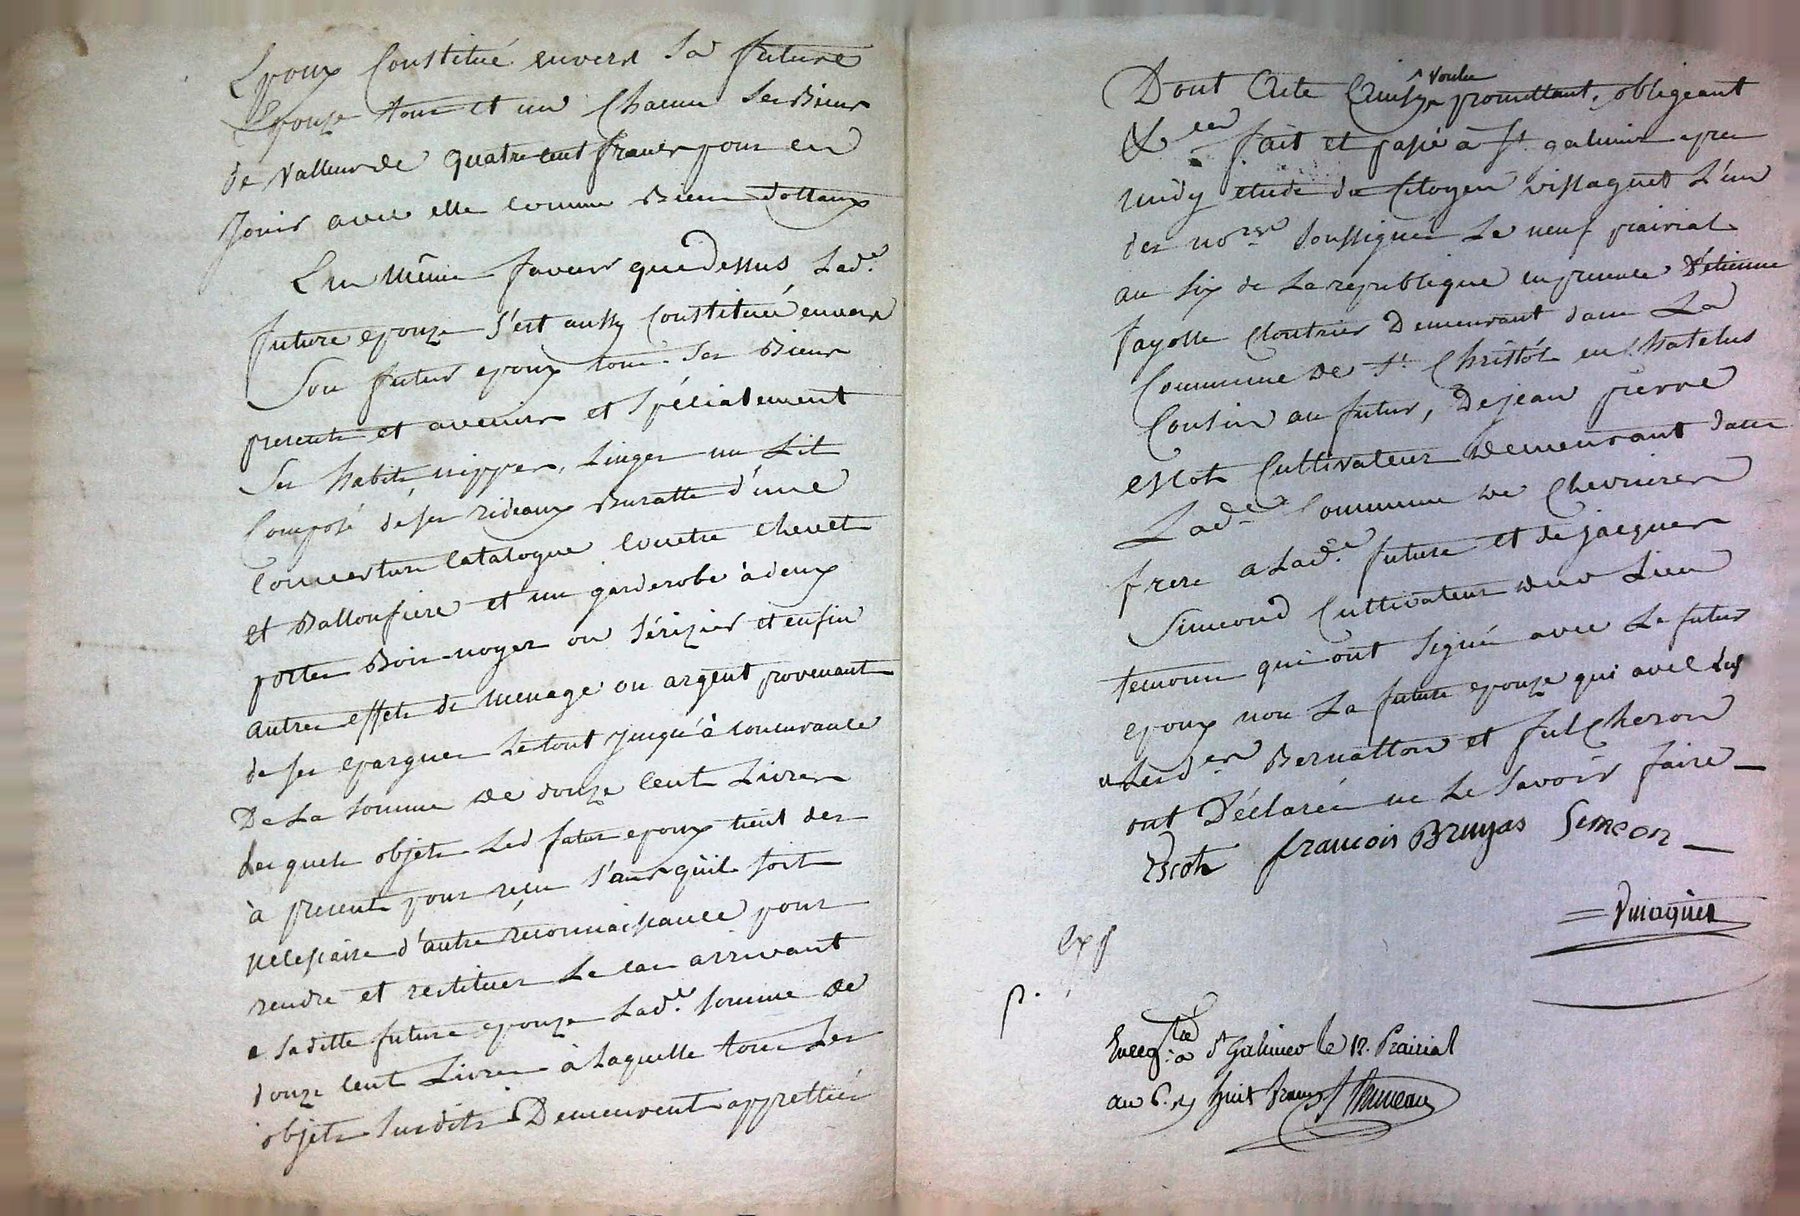 Epoux Constitué envers Sad future
Epouze tous et un Chacun ses Biens
de Valleur de quatre cent francs pour en
Jouir avec elle comme Bien dottaux
En même faveur que Dessus Lad.e
future epouze s'est aussy Constituée envers
Son futur epoux tous ses Biens
presents et avenirs et spécialement
Ses habits nippes, Linges un Lit
Composé de ses rideaux Buratte d'une
Couverture Catalogne Coultre chevet
et Balloufiere et un garderobe à deux
portes Bois noyer ou Sérizier et enfin
autres effets de menage ou argent provenant
de ses epargnes Le tout jusqu'à concurance
De La somme de douze Cent Livres
Lesquels objets Led futur epoux tient des
à present pour recu s'ans qu'il soit
necessaire d'autre réconnaissance pour
rendre et restituer Le cas arrivant
a Saditte future epouze Lad.e somme de
douze Cent Livres à Laquelle tous Les
objets Susdits Demeurent apprettiés
Dont Acte Ainsy voulu promettant, obligeant
&.ces fait et passé à St. galmier apres
midy etude du Citoyen vissaguet L'un
des no.res Soussignés Le neuf prairial
an six de La republique en presence d'etienne
fayolle Cloutrier Demeurant dans La
Commune de St. Christôt en Chatelus
Cousin au futur, De jean pierre
escot Cultivateur Demeurant dans
Lad.e Commune de Chevrieres
frere a Lad.e future et de jacques
Simeond Cultivateur dud Lieu
temoins qui ont signé avec Le futur
epoux non La future epouze qui avec
Lesd.es Bernatton et fulcheron
ont Déclarées ne Le Savoir faire
Escot francois Bruyas Simeon
exp
p.
Enreg.té à St Galmier le 12. Prairial
an 6. r huit francs